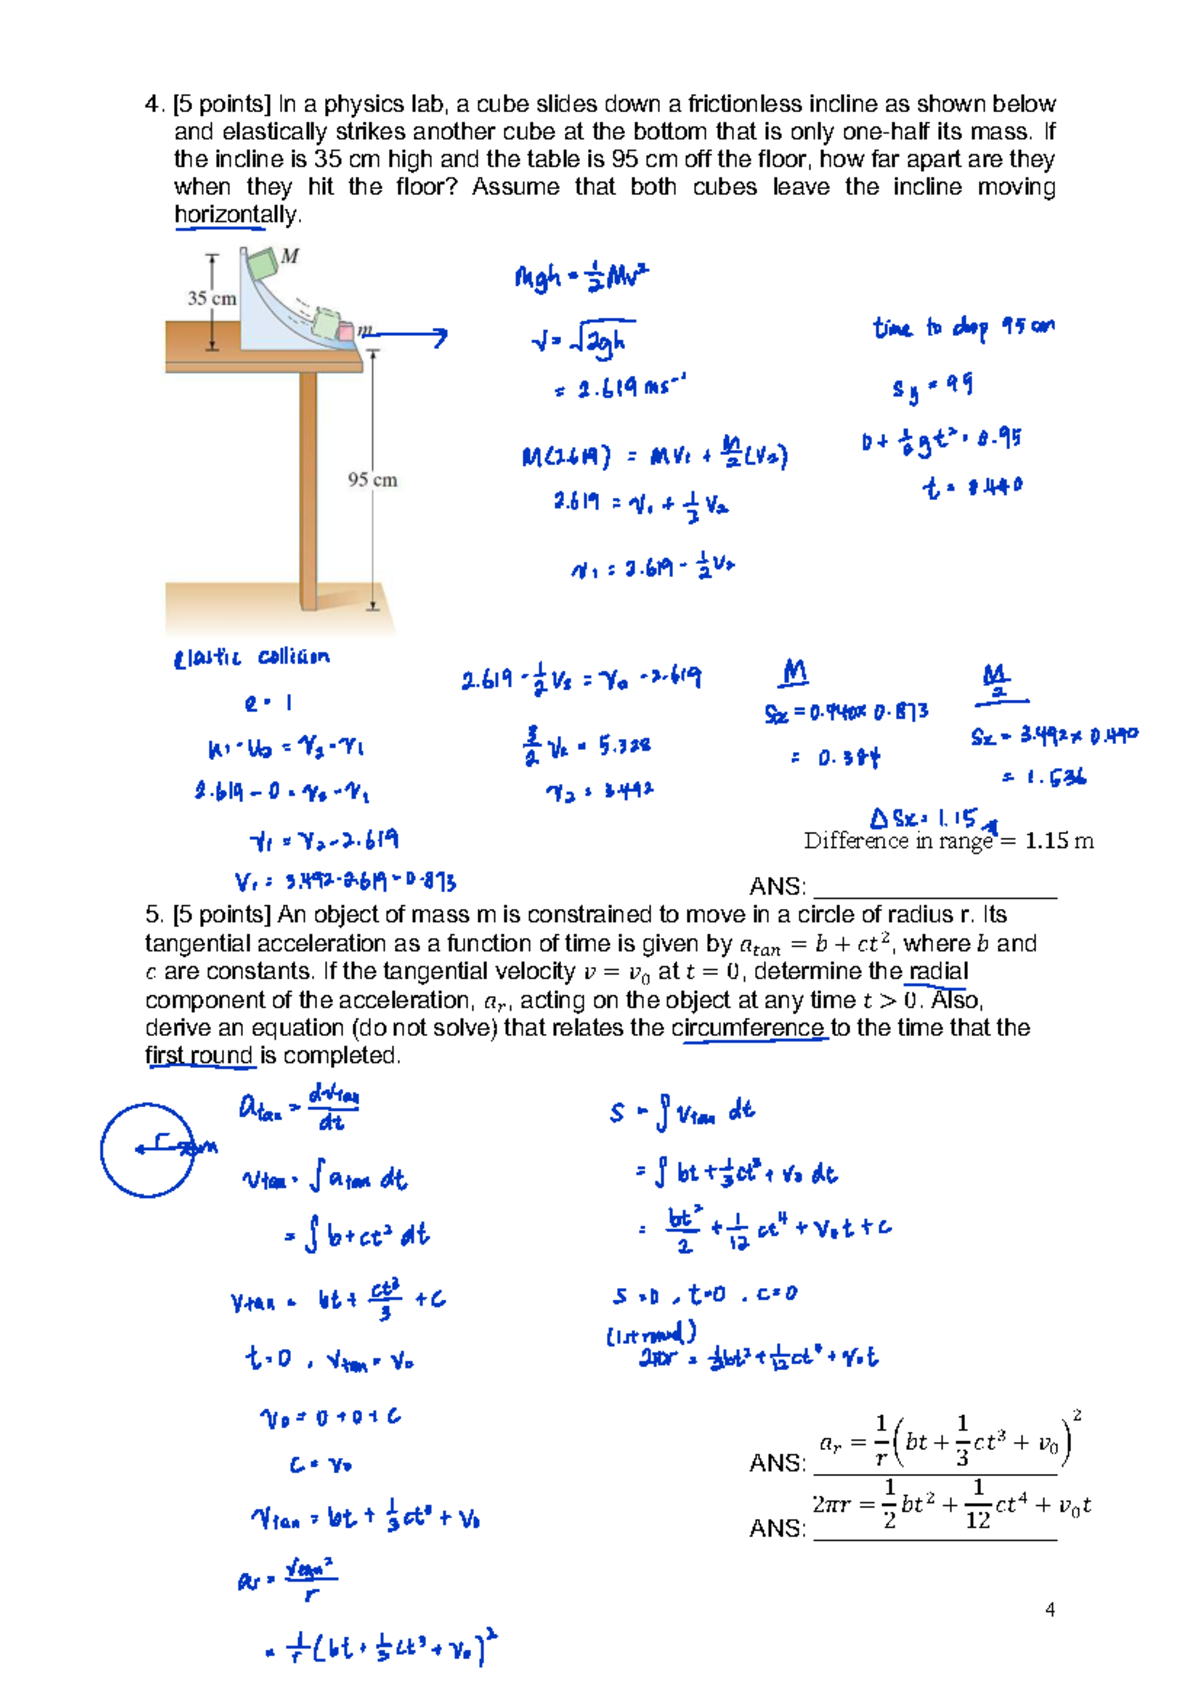 4. [5 points] In a physics lab, a cube slides down a frictionless incline as shown below
and elastically strikes another cube at the bottom that is only one-half its mass. If
the incline is 35 cm high and the table is 95 cm off the floor, how far apart are they
when they hit the floor? Assume that both cubes leave the incline moving
horizontally.
M
35 cm
m
95 cm
Mgh = 1/2 Mv²
v = √2gh
= 2.619 ms⁻¹
M(2.619) = Mv₁ + M/2 (v₂)
2.619 = v₁ + 1/2 v₂
v₁ = 2.619 - 1/2 v₂
time to drop 95 cm
0 + 1/2 gt² = 0.95
t = 0.440
elastic collision
e = 1
u₁ - u₂ = v₂ - v₁
2.619 - 0 = v₂ - v₁
v₁ = v₂ - 2.619
v₁ = 3.492 - 2.619 = 0.873
2.619 - 1/2 v₂ = v₂ - 2.619
3/2 v₂ = 5.238
v₂ = 3.492
M
Sx = 0.440 × 0.873
= 0.384
M/2
Sx = 3.492 × 0.440
= 1.536
ΔSx = 1.15
Difference in range = 1.15 m
ANS:
5. [5 points] An object of mass m is constrained to move in a circle of radius r. Its
tangential acceleration as a function of time is given by a_tan = b + ct², where b and
c are constants. If the tangential velocity v = v₀ at t = 0, determine the radial
component of the acceleration, a_r, acting on the object at any time t > 0. Also,
derive an equation (do not solve) that relates the circumference to the time that the
first round is completed.
r
m
a_tan = dv_tan/dt
v_tan = ∫ a_tan dt
= ∫ b + ct² dt
v_tan = bt + ct³/3 + c
t = 0 , v_tan = v₀
v₀ = 0 + 0 + c
c = v₀
v_tan = bt + 1/3 ct³ + v₀
a_r = v_tan²/r
= 1/r (bt + 1/3 ct³ + v₀)²
s = ∫ v_tan dt
= ∫ bt + 1/3 ct³ + v₀ dt
= bt²/2 + 1/12 ct⁴ + v₀t + c
s = 0 , t = 0 , c = 0
(1st round)
2πr = 1/2 bt² + 1/12 ct⁴ + v₀t
ANS: a_r = 1/r (bt + 1/3 ct³ + v₀)²
ANS: 2πr = 1/2 bt² + 1/12 ct⁴ + v₀t
4